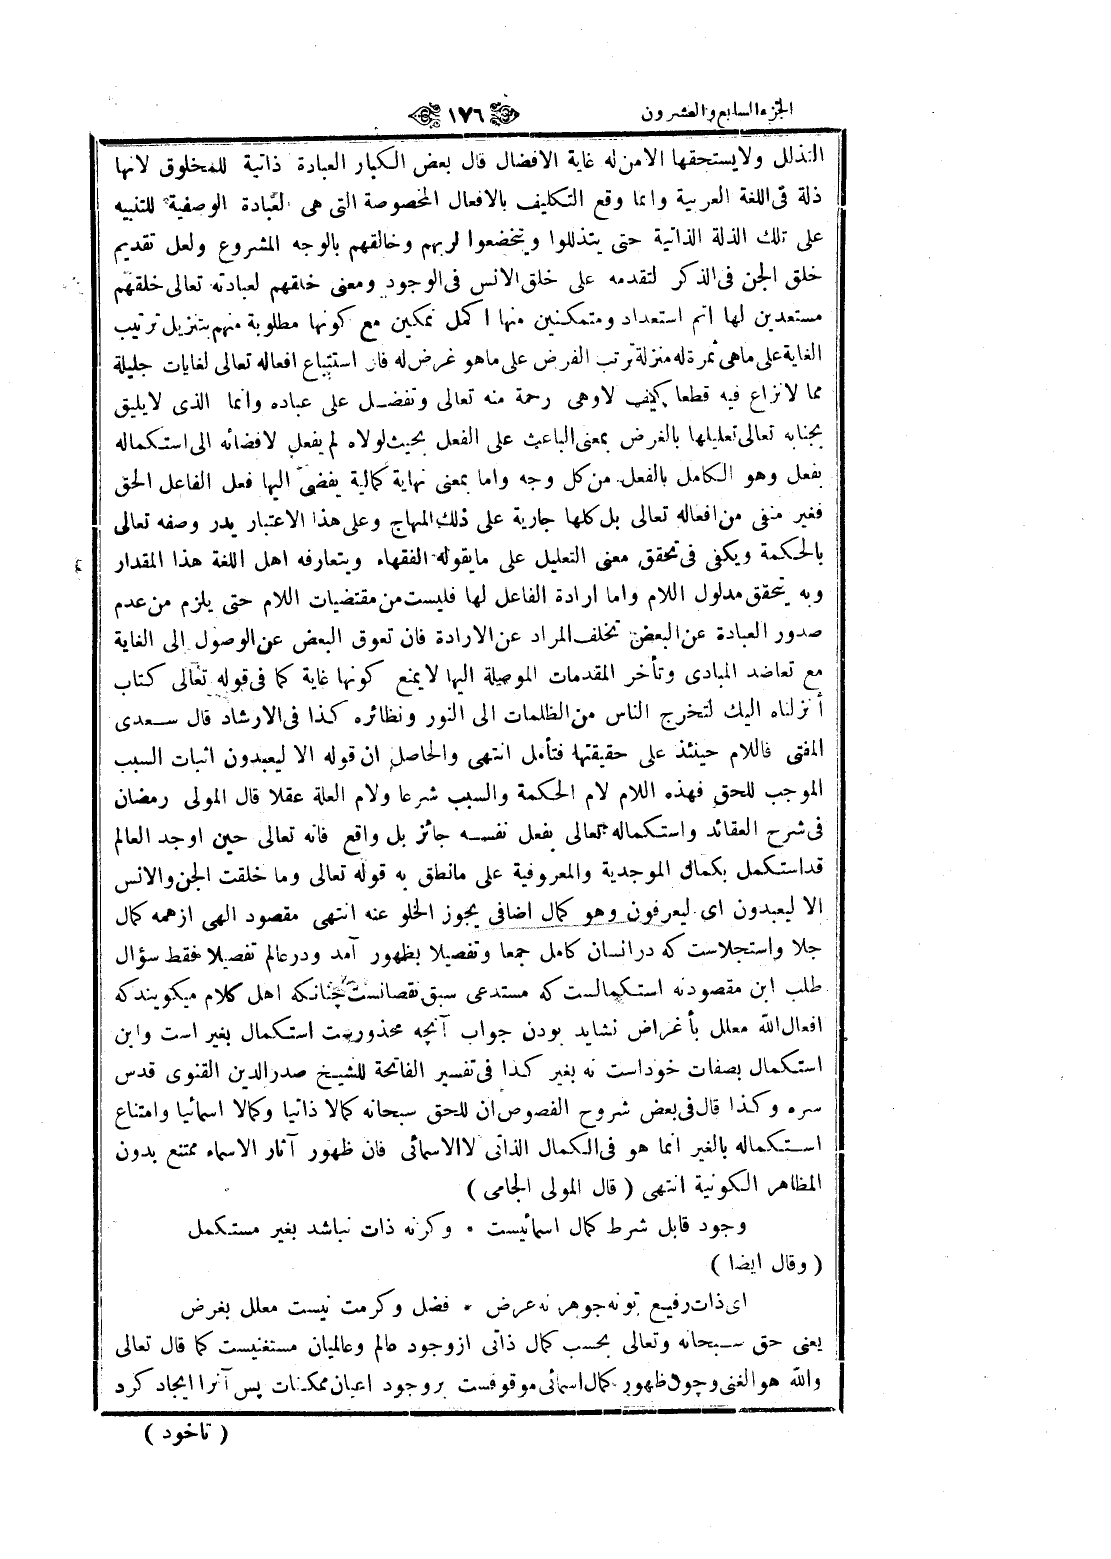 الجزء السابع والعشرون
١٧٦
التذلل ولا يستحقها الا من له غاية الافضال قال بعض الكبار العبادة ذاتية للمخلوق لانها
ذلة فى اللغة العربية وانما وقع التكليف بالافعال المخصوصة التى هى العبادة الوصفية للتنبيه
على تلك الذلة الذاتية حتى يتذللوا ويتخضعوا لربهم وخالقهم بالوجه المشروع ولعل تقديم
خلق الجن فى الذكر لتقدمه على خلق الانس فى الوجود ومعنى خلقهم لعبادته تعالى خلقهم
مستعدين لها اتم استعداد ومتمكنين منها اكمل تمكين مع كونها مطلوبة منهم بتنزيل ترتيب
الغاية على ماهى ثمرة له منزلة ترتب الغرض على ماهو غرض له فان استتباع افعاله تعالى لغايات جليلة
مما لا نزاع فيه قطعا كيف لا وهى رحمة منه تعالى وتفضل على عباده وانما الذى لايليق
بجنابه تعالى تعليلها بالغرض بمعنى الباعث على الفعل بحيث لولاه لم يفعل لافضائه الى استكماله
بفعل وهو الكامل بالفعل من كل وجه واما بمعنى نهاية كمالية يفضى اليها فعل الفاعل الحق
فغير منفى من افعاله تعالى بل كلها جارية على ذلك المنهاج وعلى هذا الاعتبار يدر وصفه تعالى
بالحكمة ويكفى فى تحقق معنى التعليل على مايقوله الفقهاء ويتعارفه اهل اللغة هذا المقدار
وبه يتحقق مدلول اللام واما ارادة الفاعل لها فليست من مقتضيات اللام حتى يلزم من عدم
صدور العبادة عن البعض تخلف المراد عن الارادة فان تعوق البعض عن الوصول الى الغاية
مع تعاضد المبادى وتأخر المقدمات الموصلة اليها لايمنع كونها غاية كما فى قوله تعالى كتاب
أنزلناه اليك لتخرج الناس من الظلمات الى النور ونظائره كذا فى الارشاد قال سعدى
المفتى فاللام حينئذ على حقيقتها فتأمل انتهى والحاصل ان قوله الا ليعبدون اثبات السبب
الموجب للحق فهذه اللام لام الحكمة والسبب شرعا ولام العلة عقلا قال المولى رمضان
فى شرح العقائد واستكماله تعالى بفعل نفسه جائز بل واقع فانه تعالى حين اوجد العالم
قد استكمل بكمال الموجدية والمعروفية على مانطق به قوله تعالى وما خلقت الجن والانس
الا ليعبدون اى ليعرفون وهو كمال اضافى يجوز الخلو عنه انتهى مقصود الهى ازهمه كمال
جلا واستجلاست كه در انسان كامل جمعا وتفصيلا بظهور آمد ودر عالم تفصيلا فقط سؤال
طلب اين مقصود نه استكمالست كه مستدعى سبق نقصانست چنانكه اهل كلام ميكويند كه
افعال الله معلل بأغراض نشايد بودن جواب آنچه محذوريست استكمال بغير است واين
استكمال بصفات خود است نه بغير كذا فى تفسير الفاتحة للشيخ صدر الدين القنوى قدس
سره وكذا قال فى بعض شروح الفصوص ان للحق سبحانه كمالا ذاتيا وكمالا اسمائيا وامتناع
استكماله بالغير انما هو فى الكمال الذاتى لا الاسمائى فان ظهور آثار الاسماء ممتنع بدون
المظاهر الكونية انتهى ( قال المولى الجامى )
وجود قابل شرط كمال اسمائيست * وكرنه ذات نباشد بغير مستكمل
( وقال ايضا )
اى ذات رفيع تونه جوهر نه عرض * فضل وكرمت نيست معلل بغرض
يعنى حق سبحانه وتعالى بحسب كمال ذاتى از وجود عالم وعالميان مستغنيست كما قال تعالى
والله هو الغنى وچون ظهور كمال اسمائى موقوفست بر وجود اعيان ممكنات پس آنرا ايجاد كرد
( تاخود )